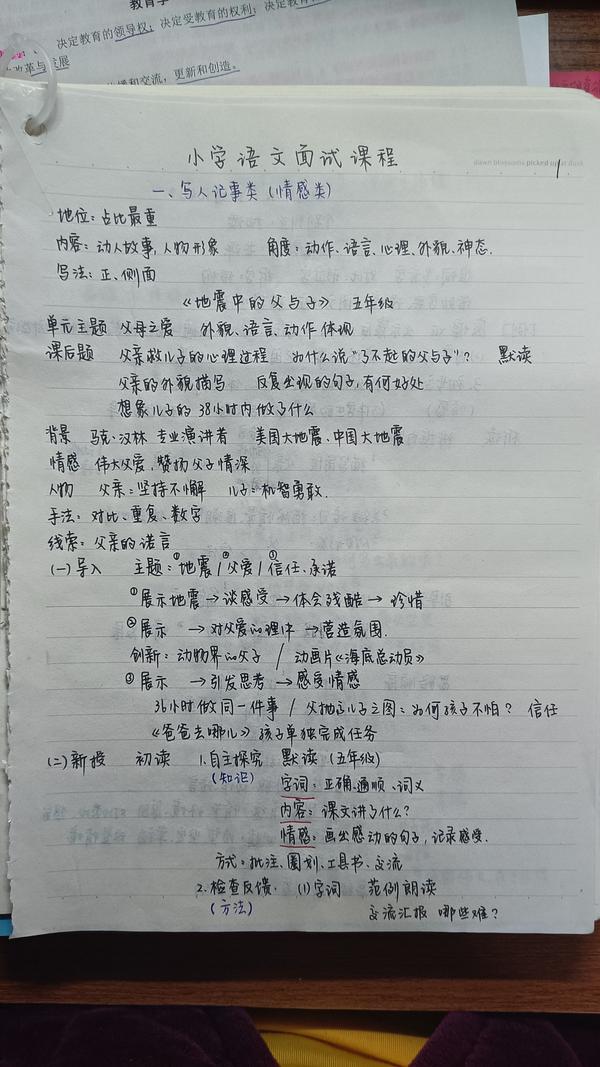 决定教育的领导权；决定受教育的权利；决定教育
改革与发展
和交流，更新和创造。
dawn blossoms picked up at dusk
1
小学语文面试课程
一、写人记事类（情感类）
地位：占比最重
内容：动人故事，人物形象 角度：动作、语言、心理、外貌、神态.
写法：正、侧面
《地震中的父与子》 五年级
单元主题 父母之爱 外貌、语言、动作体现
课后题 父亲救儿子的心理过程 为什么说"了不起的父与子"？ 默读
父亲的外貌描写 反复出现的句子，有何好处
想象儿子的38小时内做了什么
背景 马克·汉林 专业演讲者 美国大地震、中国大地震
情感 伟大父爱，赞扬父子情深
人物 父亲：坚持不懈 儿子：机智勇敢.
手法：对比、重复、数字
线索：父亲的诺言
(一)导入 主题：①地震/②父爱/③信任、承诺
①展示地震→谈感受→体会残酷→珍惜
②展示 →对父爱的理解→营造氛围.
创新：动物界的父子 / 动画片《海底总动员》
③展示 →引发思考→感受情感
36小时做同一件事 / 父抛这儿子之图：为何孩子不怕？ 信任
《爸爸去哪儿》孩子单独完成任务
(二)新授 初读 1.自主探究 默读（五年级）
(知识) 字词：正确、通顺、词义
内容：课文讲了什么？
情感：画出感动的句子，记录感受.
方式：批注、圈划、工具书、交流
2.检查反馈. (1)字词 范例朗读
(方法) 交流汇报 哪些难？